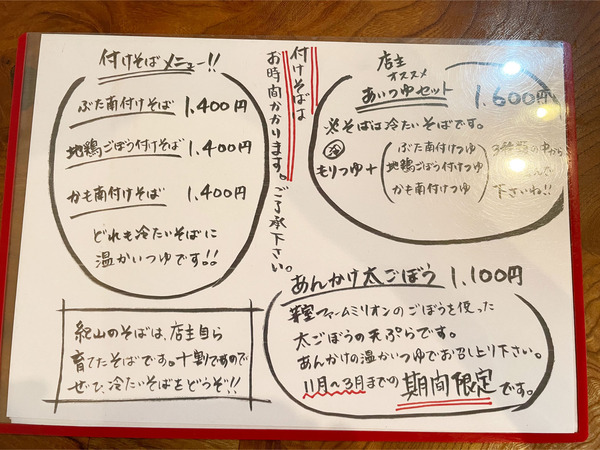 付けそばメニュー!!
ぶた南付けそば 1,400円
地鶏ごぼう付けそば 1,400円
かも南付けそば 1,400円
どれも冷たいそばに
温かいつゆです!!
付けそばは
お時間かかります。ご了承下さい。
店主
オススメ
あいつゆセット 1,600円
※そばは冷たいそばです。
冷
もりつゆ+
ぶた南付けつゆ
地鶏ごぼう付けつゆ
かも南付けつゆ
3種類の中から
下さいね!!
あんかけ太ごぼう 1,100円
ファームミリオンのごぼうを使った
太ごぼうの天ぷらです。
あんかけの温かいつゆでお召し上り下さい。
11月〜3月までの期間限定です。
紀山のそばは、店主自ら
育てたそばです。十割ですので
ぜひ、冷たいそばをどうぞ!!